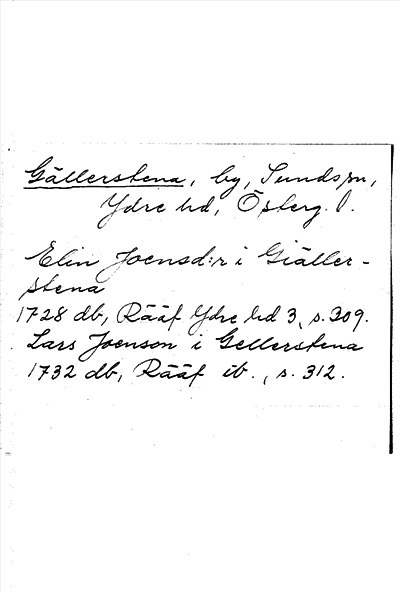 Gällerstena, by, Sunds sn,
Ydre hd, Österg. l.
Elin Joensd:r i Giäller-
stena
1728 db, Rääf Ydre hd 3, s. 309.
Lars Joenson i Gellerstena
1732 db, Rääf ib., s. 312.